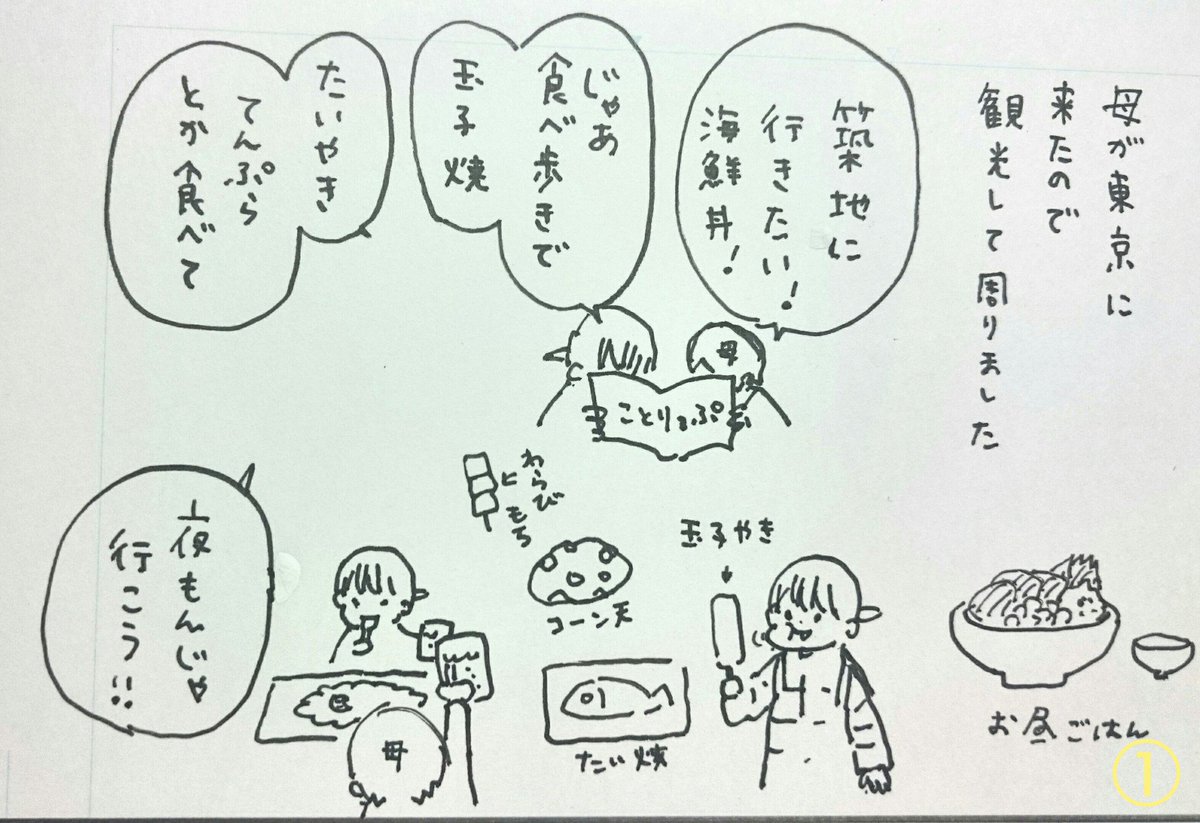 母が東京に
来たので
観光して周りました
築地に
行きたい!
海鮮丼!
じゃあ
食べ歩きで
玉子焼
たいやき
てんぷら
とか食べて
母
ことりっぷ
お昼ごはん
玉子やき
わらび
もち
コーン天
たい焼
夜もんじゃ
行こう!!
母
①